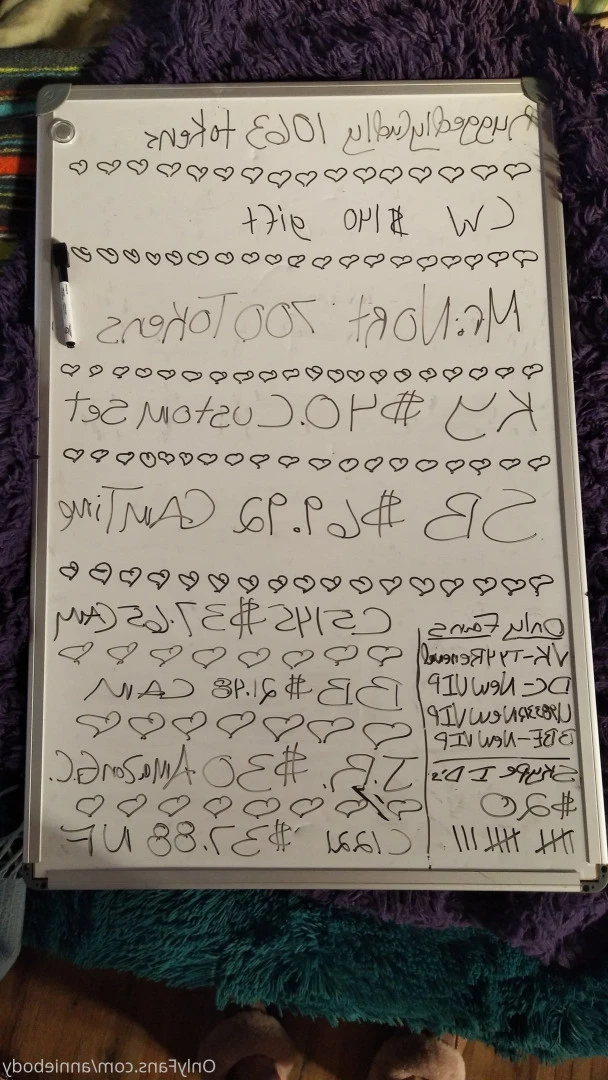 Ruggedlycuddly 1063 tokens
CW $140 gift
Mr. Nort 700 Tokens
KY $40. Custom Set
SB $69.92 CAM Time
C5145 $37.65 CAM
BB $21.48 CAM
J.R. $30 Amazon G.C.
C1221 $37.88 NF
Only Fans
VK-TY4Renewal
DC-NewVIP
NewVIP
BBE-NewVIP
Skype I.D.'s
$20
OnlyFans.com/anniebody